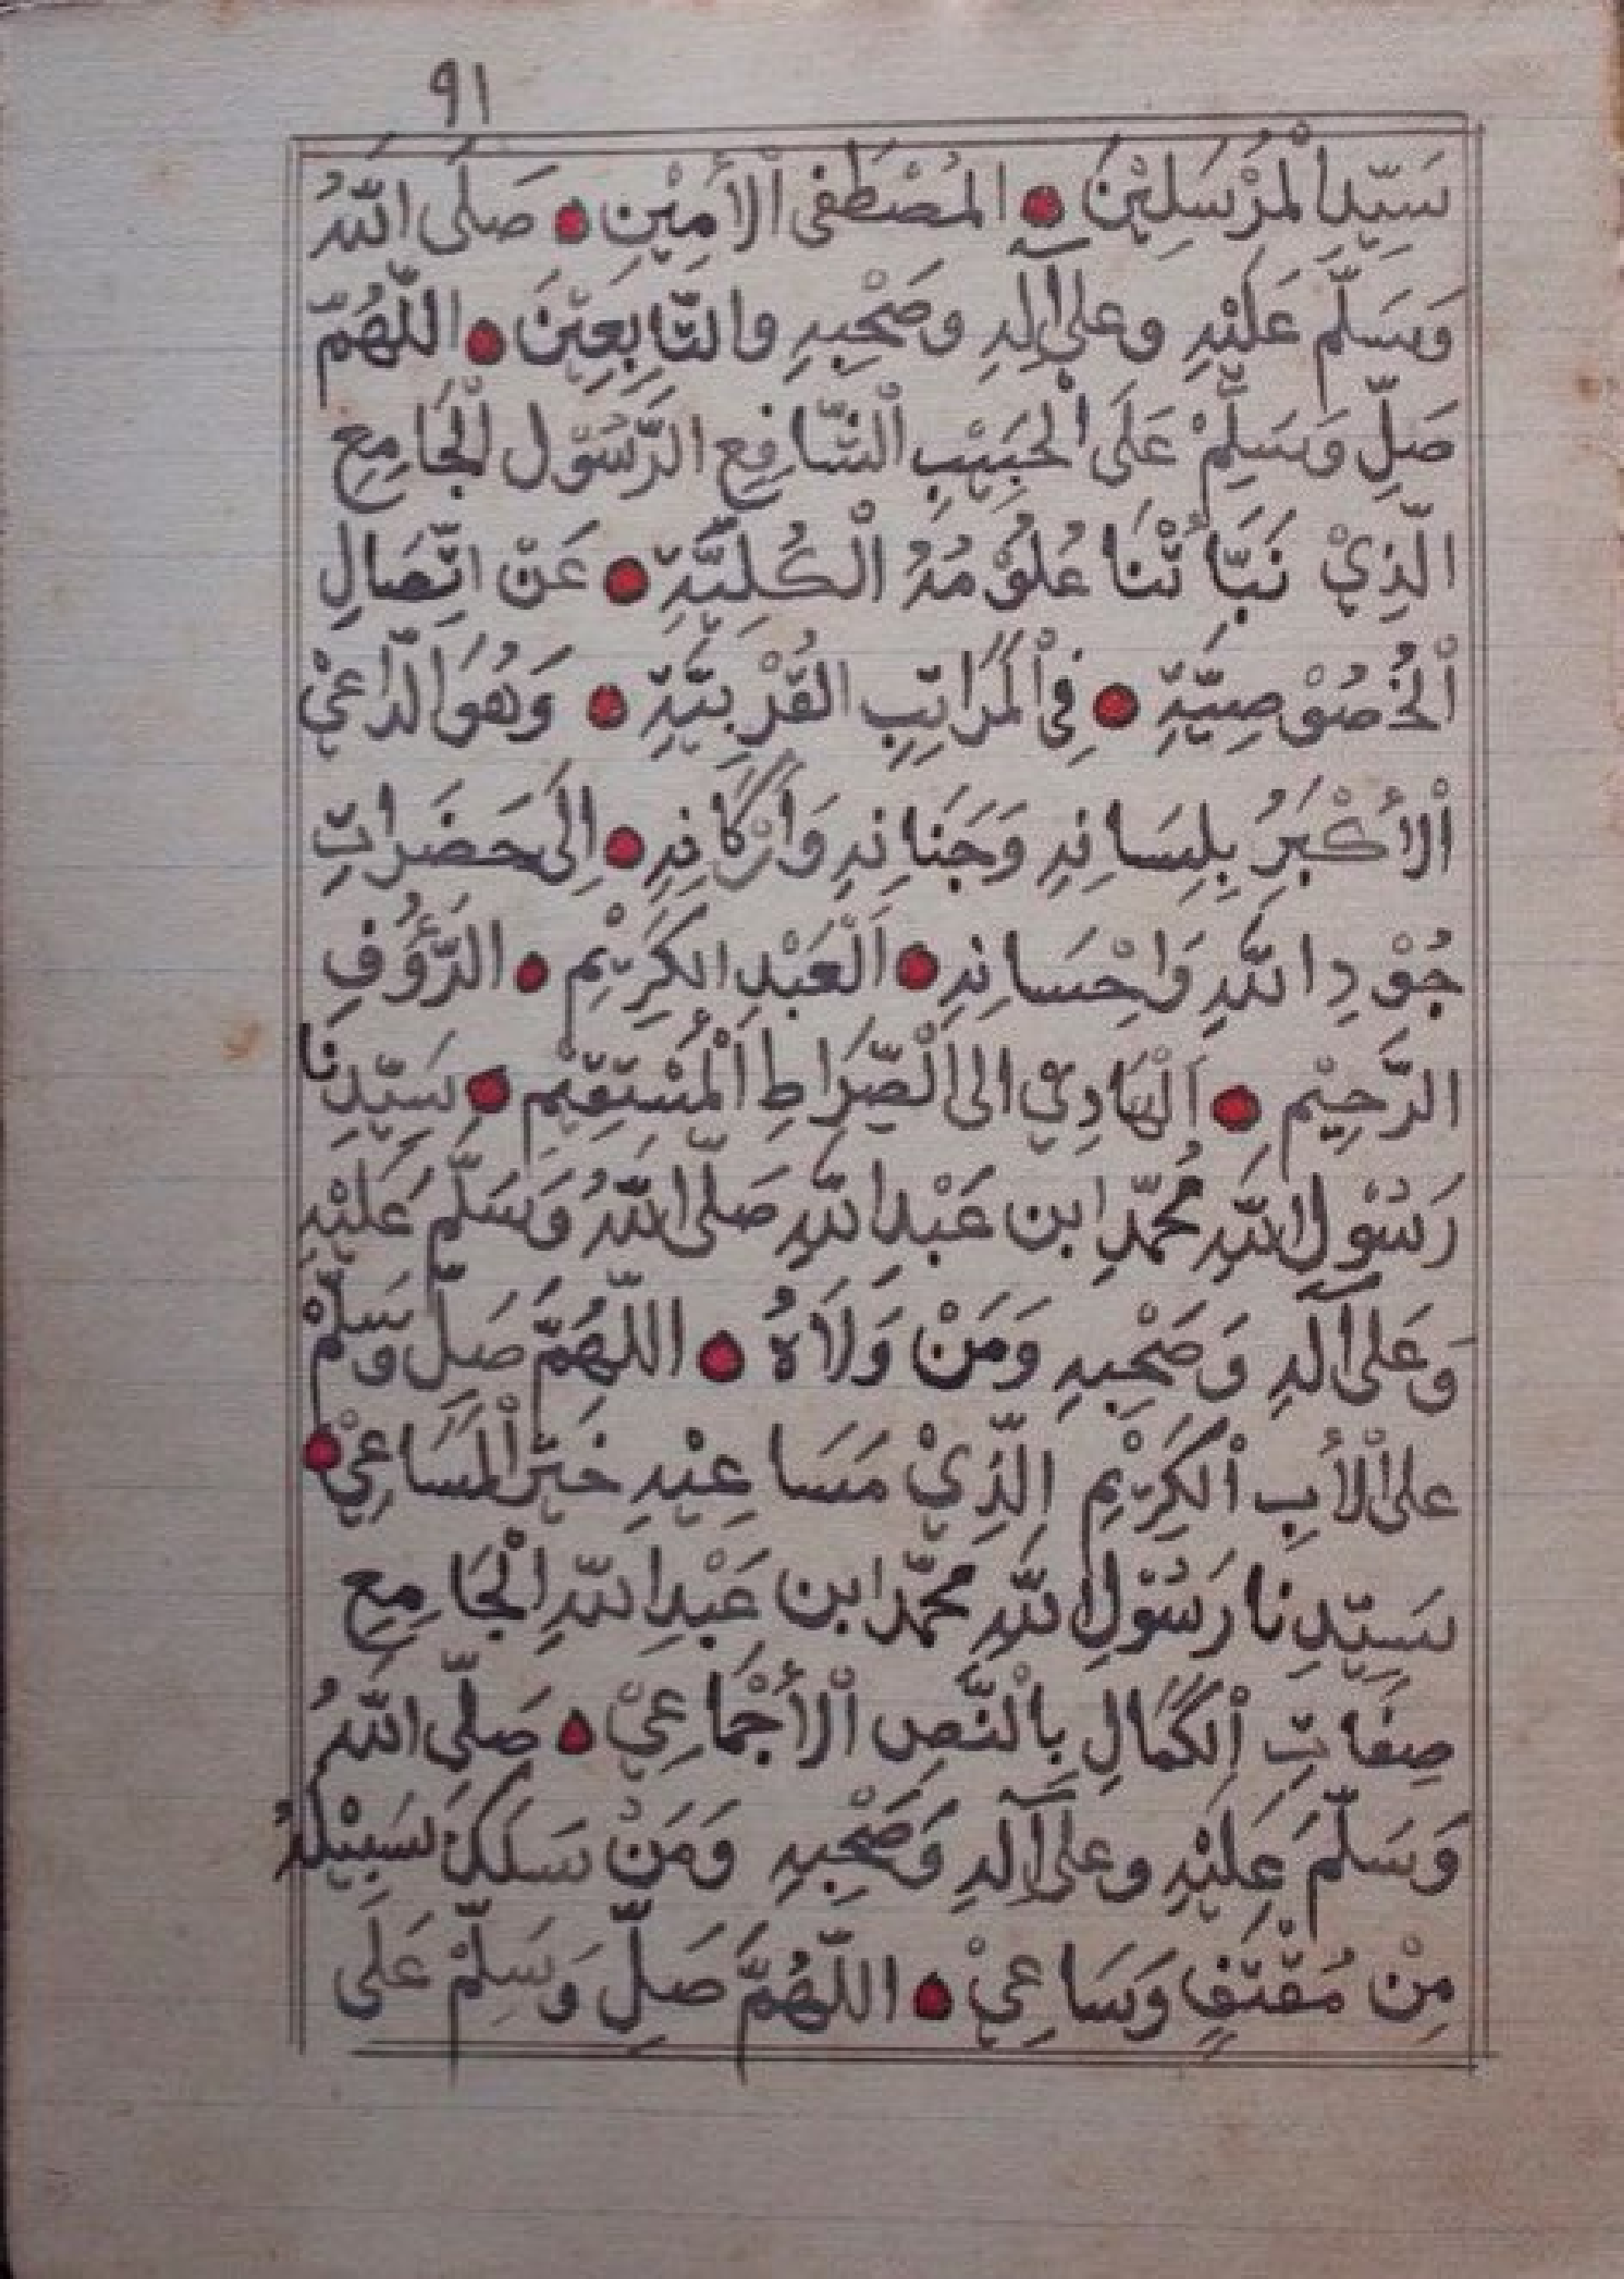 ٩١
سَيِّدِ الْمُرْسَلِيْنَ ● المُصْطَفَى الْأَمِيْنِ ● صَلَّى اللّٰهُ
وَسَلَّمَ عَلَيْهِ وعلى آلِهِ وصَحْبِهِ والتَّابِعِيْنَ ● اللّٰهُمَّ
صَلِّ وَسَلِّمْ عَلَى الْحَبِيْبِ الْشَّافِعِ الرَّسُوْلِ الْجَامِعِ
الَّذِيْ نَبَّأَتْنَا عُلُوْمُهُ الْكُلِيَّةِ ● عَنْ اتِّصَالِ
الْخُصُوْصِيَّةِ ● فِي الْمَرَاتِبِ القُرْبِيَّةِ ● وَهُوَ الدَّاعِيْ
الْأَكْبَرُ بِلِسَانِهِ وَجَنَانِهِ وَارْكَانِهِ ● اِلَى حَضَرَاتِ
جُوْدِ اللّٰهِ وَاِحْسَانِهِ ● اَلْعَبْدِ الكَرِيْمِ ● الرَّؤُوْفِ
الرَّحِيْمِ ● اَلْهَادِيْ الى الْصِّرَاطِ الْمُسْتَقِيْمِ ● سَيِّدِنَا
رَسُوْلِ اللّٰهِ مُحَمَّدِ ابن عَبْدِ اللّٰهِ صَلَّى اللّٰهُ وَسَلَّمَ عَلَيْهِ
وَعَلى آلِهِ وَصَحْبِهِ وَمَنْ وَلَاهُ ● اللّٰهُمَّ صَلِّ وَسَلِّمْ
على الْأَبِ الْكَرِيْمِ الَّذِيْ مَسَاعِيْهِ خَيْرَ الْمَسَاعِيْ ●
سَيِّدِنَا رَسُوْلِ اللّٰهِ محمَّد ابن عَبْدِ اللّٰهِ الْجَامِعِ
صِفَاتِ الْكَمَالِ بِالْنَّصِ الْأَجْمَاعِيْ ● صَلَّى اللّٰهُ
وَسَلَّمَ عَلَيْهِ وعلى آلِهِ وَصَحْبِهِ وَمَنْ سَلَكَ سَبِيْلَهُ
مِنْ مُقْتَفٍ وَسَاعِيْ ● اللّٰهُمَّ صَلِّ وَسَلِّمْ عَلَى